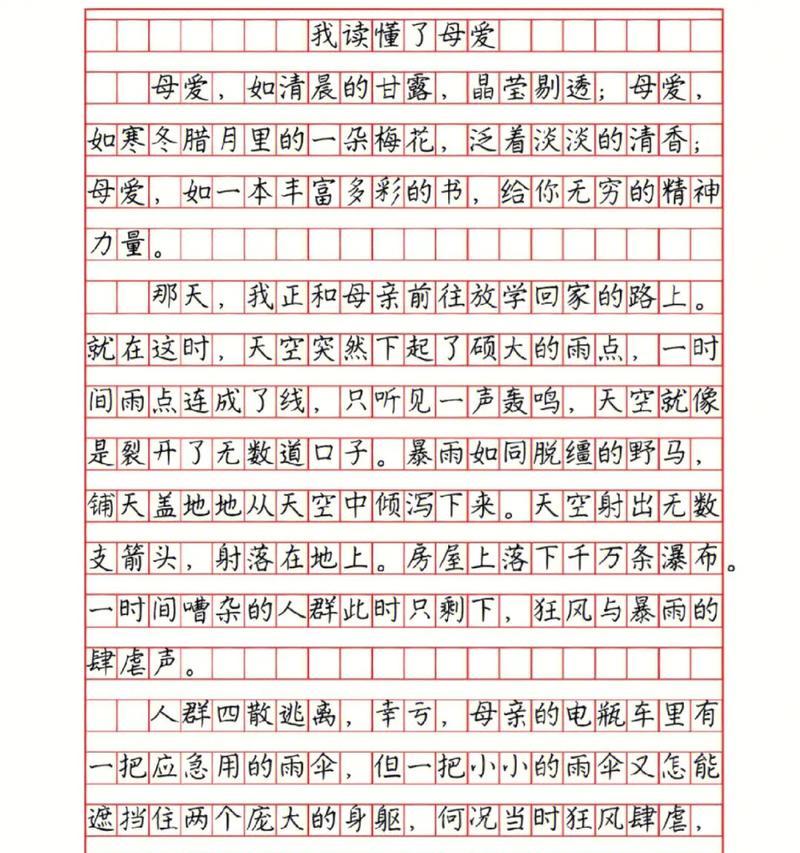 我读懂了母爱
母爱，如清晨的甘露，晶莹剔透；母爱，
如寒冬腊月里的一朵梅花，泛着淡淡的清香；
母爱，如一本丰富多彩的书，给你无穷的精神
力量。
那天，我正和母亲前往放学回家的路上。
就在这时，天空突然下起了硕大的雨点，一时
间雨点连成了线，只听见一声轰鸣，天空就像
是裂开了无数道口子。暴雨如同脱缰的野马，
铺天盖地地从天空中倾泻下来。天空射出无数
支箭头，射落在地上。房屋上落下千万条瀑布。
一时间嘈杂的人群此时只剩下，狂风与暴雨的
肆虐声。
人群四散逃离，幸亏，母亲的电瓶车里有
一把应急用的雨伞，但一把小小的雨伞又怎能
遮挡住两个庞大的身躯，何况当时狂风肆虐，